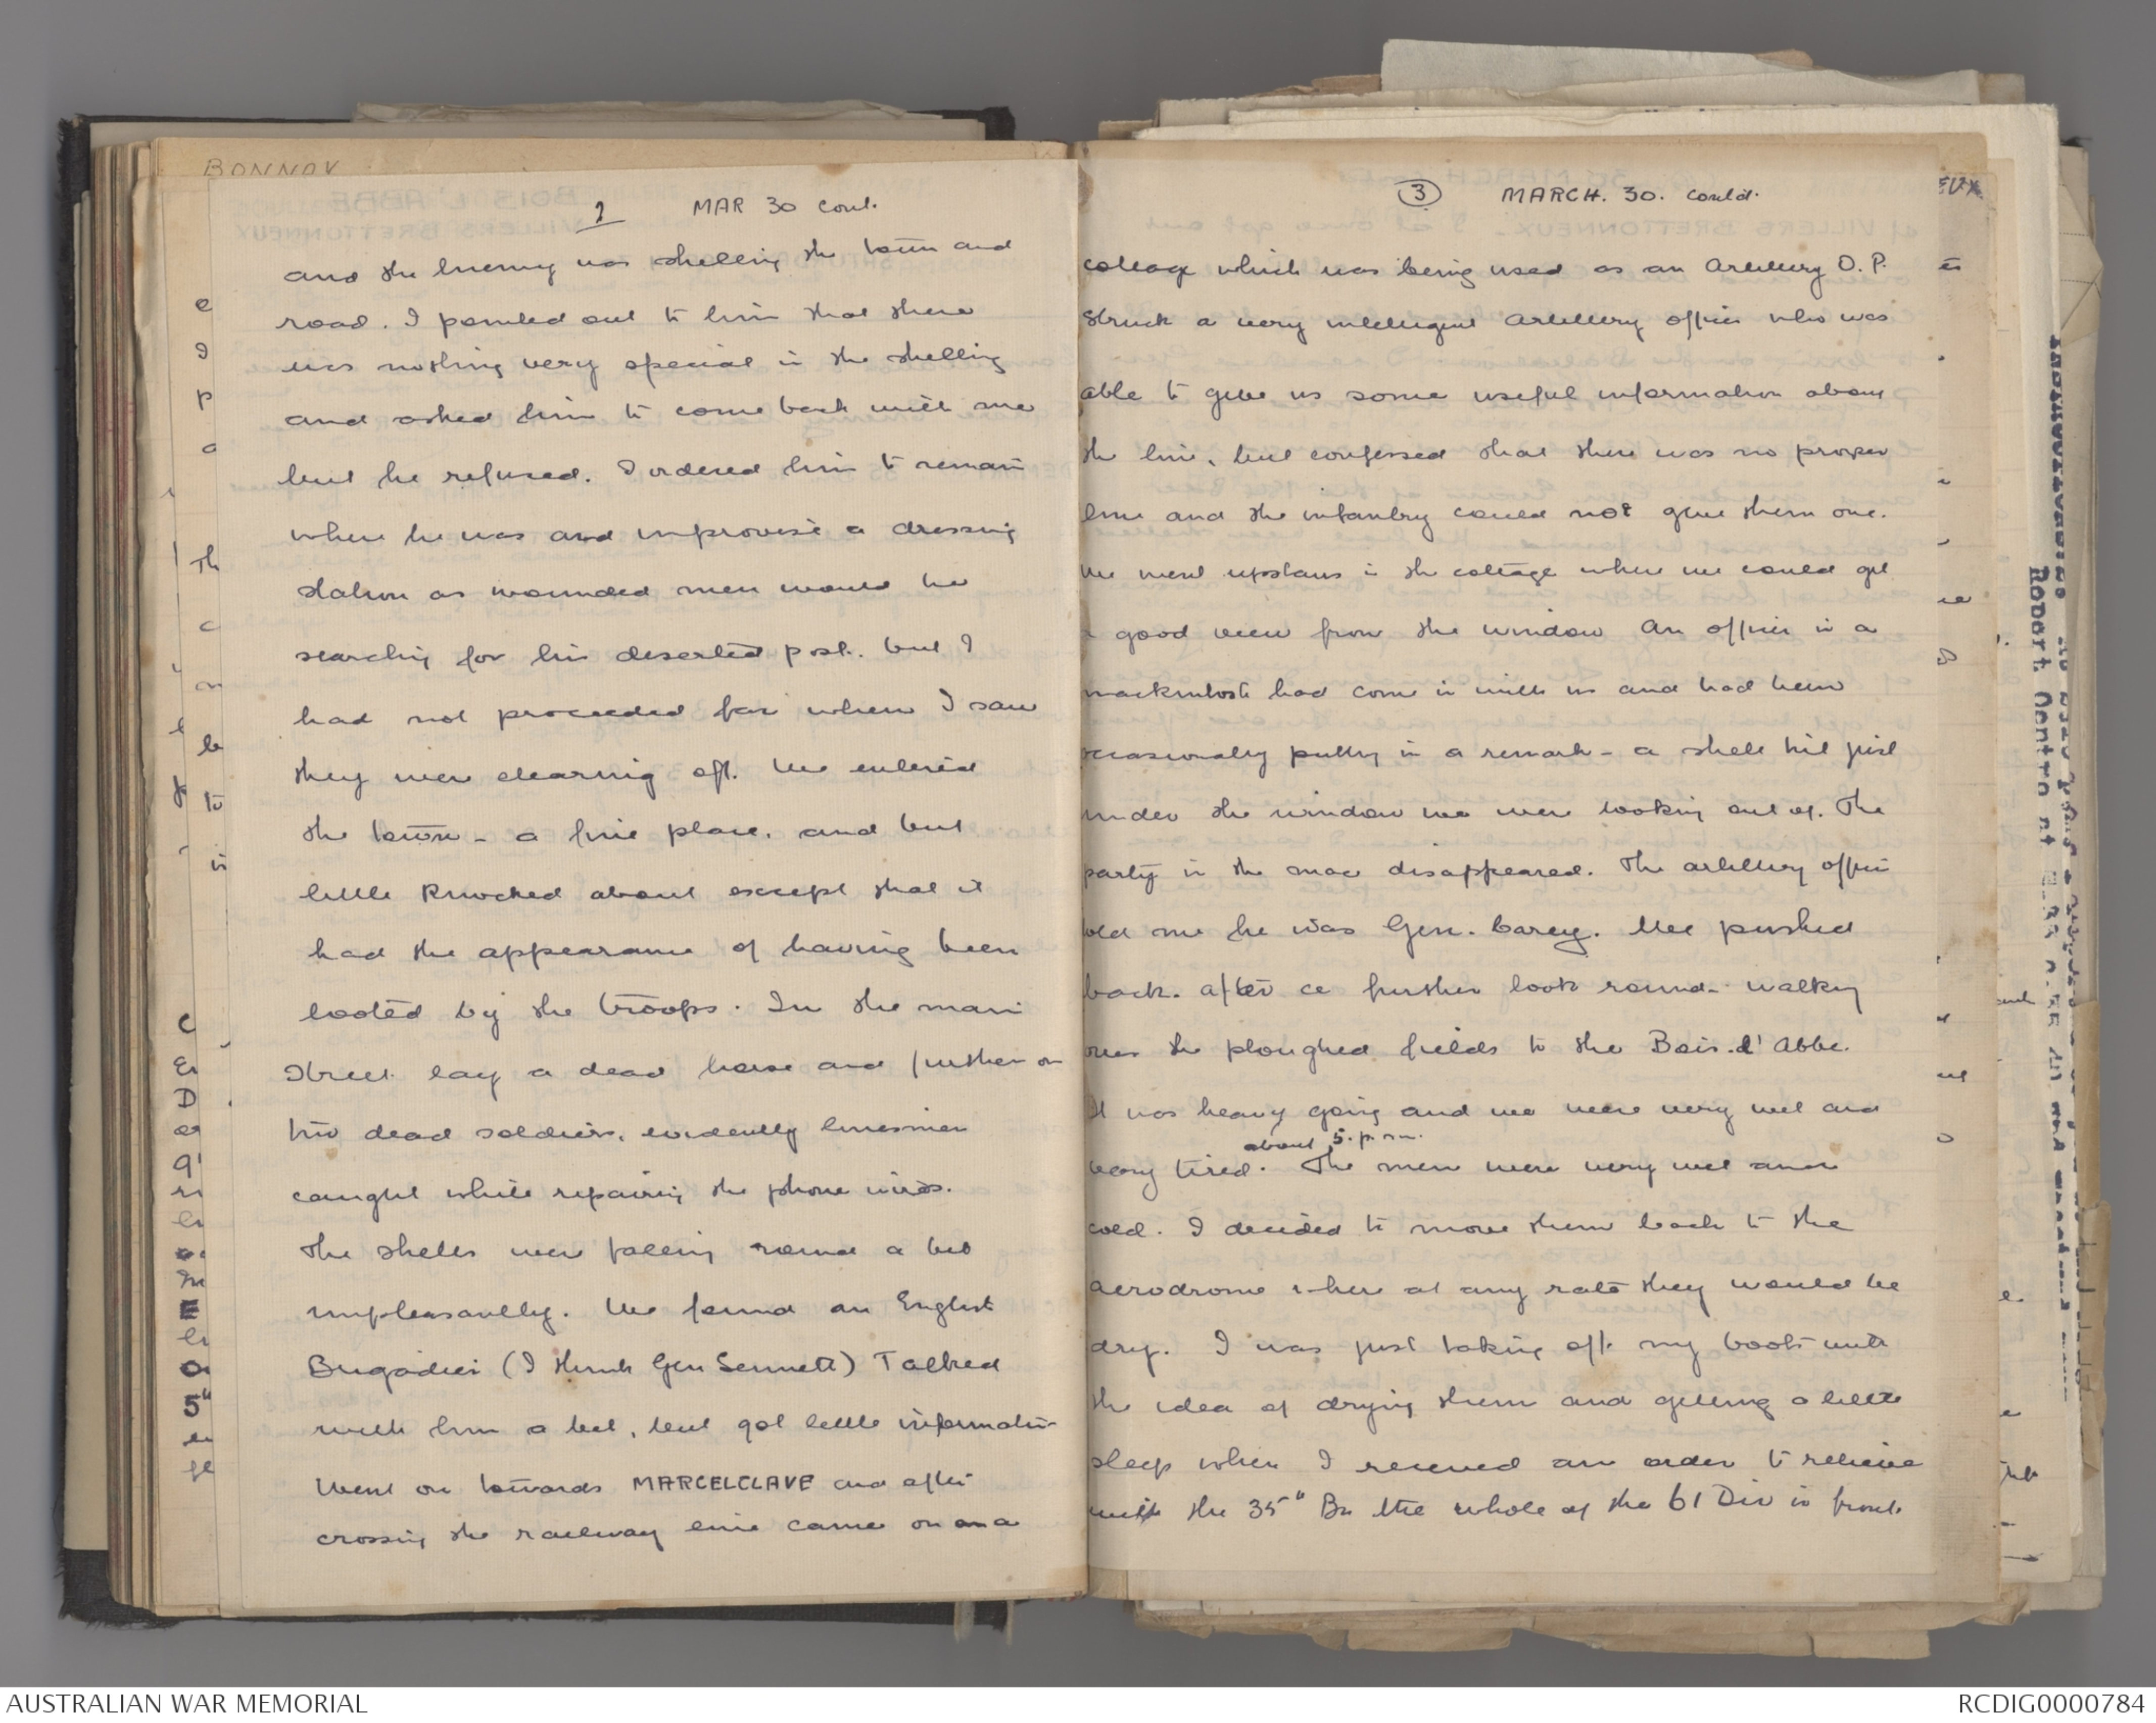 BONNAY
2 MAR 30 cont.
and the Enemy was shelling the town and
road. I pointed out to him that there
was nothing very special in the shelling
and asked him to come back with me
but he refused. I ordered him to remain
where he was and improvise a dressing
station as wounded men would be
searching for his deserted post. but I
had not proceeded far when I saw
they were clearing off. We entered
the town - a fine place, and but
little knocked about except that it
had the appearance of having been
looted by the troops. In the main
Street lay a dead horse and further on
two dead soldiers, evidently linesmen
caught while repairing the phone wires.
The shells were falling round a bit
unpleasantly. We found an English
Brigadier (I think Gen Sennett) Talked
with him a bit, but got little information
Went on towards MARCELCLAVE and after
crossing the railway line came on a
3 MARCH. 30. contd.
cottage which was being used as an Artillery O.P.
Struck a very intelligent Artillery officer who was
able to give us some useful information about
the line, but confessed that there was no proper
line and the infantry could not give them one.
We went upstairs in the cottage where we could get
a good view from the window An officer in a
mackintosh had come in with us and had been
occasionally putting in a remark - a shell hit just
under the window we were looking out of. The
party in the mac disappeared. The artillery officer
told me he was Gen. Carey. We pushed
back. after a further look round - walking
over the ploughed fields to the Bois. d' Abbe.
It was heavy going and we were very wet and
about 5. p.m.
very tired. The men were very wet and
cold. I decided to move them back to the
aerodrome where at any rate they would be
dry. I was just taking off my boots with
the idea of drying them and getting a little
sleep when I received an order to relieve
with the 35" Bn the whole of the 61 Div in front
Report Centre at
AUSTRALIAN WAR MEMORIAL
RCDIG0000784